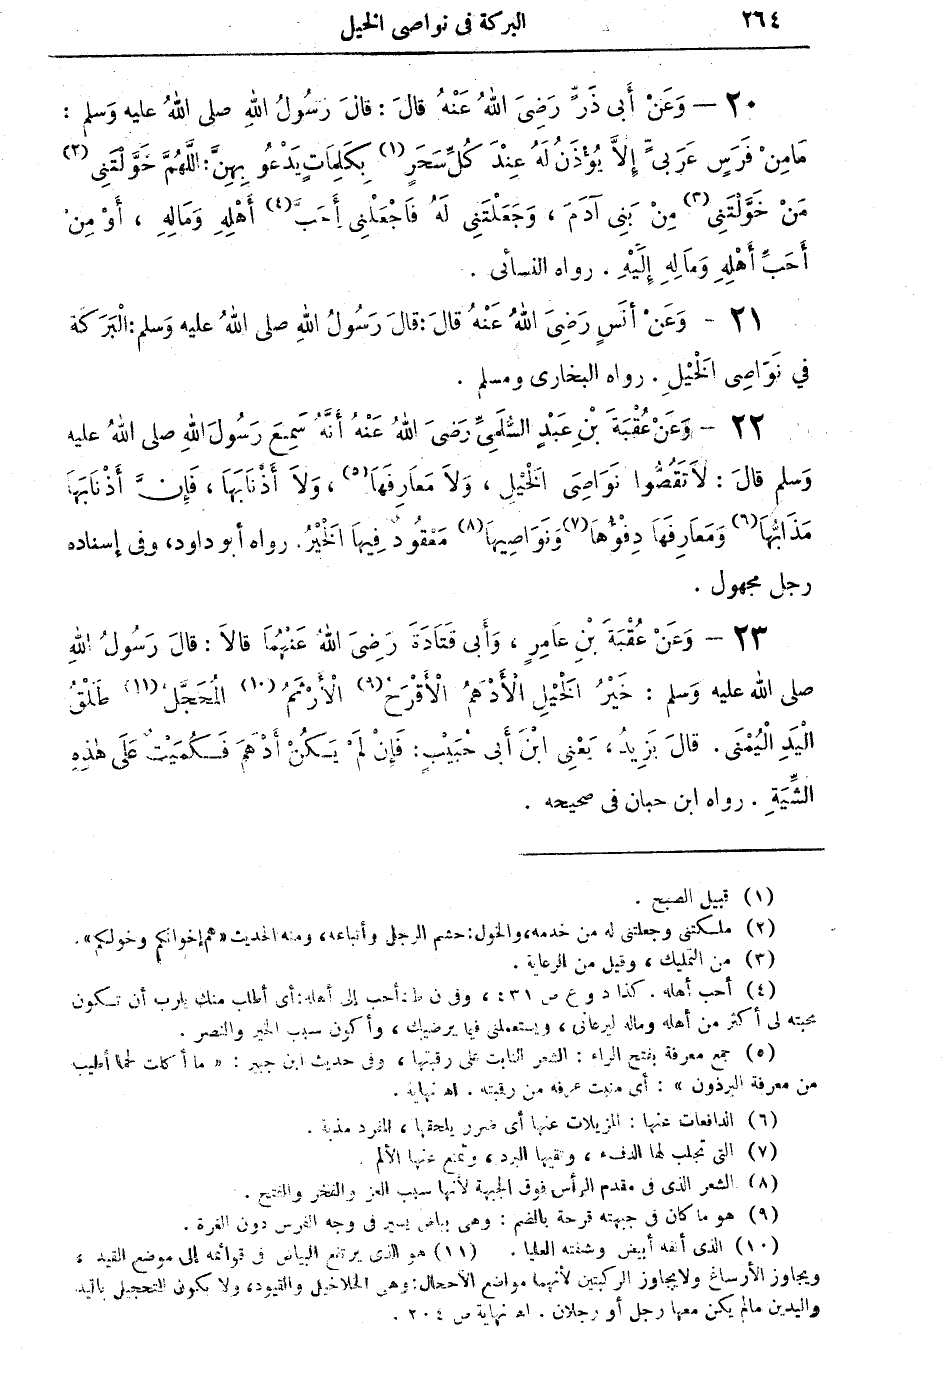 ٢٦٤
البركة فى نواصى الخيل
٢٠ — وَعَنْ أَبى ذَرٍّ رَضِىَ اللهُ عَنْهُ قالَ : قالَ رَسُولُ اللهِ صلى اللهُ عليه وَسلم :
مَامِنْ فَرَسٍ عَرَبىٍّ إِلاَّ يُؤْذَنُ لَهُ عِنْدَ كُلِّ سَحَرٍ (١) بِكَلِمَاتٍ يَدْعُو بِهِنَّ: اللَّهُمَّ خَوَّلْتَنِى (٢)
مَنْ خَوَّلْتَنِى (٣) مِنْ بَنِى آدَمَ ، وَجَعَلْتَنِى لَهُ فَاجْعَلْنِى أَحَبَّ (٤) أَهْلِهِ وَمَالِهِ ، أَوْ مِنْ
أَحَبِّ أَهْلِهِ وَمَالِهِ إِلَيْهِ . رواه النسائى .
٢١ - وَعَنْ أَنَسٍ رَضِىَ اللهُ عَنْهُ قالَ : قالَ رَسُولُ اللهِ صلى اللهُ عليه وَسلم : الْبَرَكَةُ
فِي نَوَاصِى الْخَيْلِ . رواه البخارى ومسلم .
٢٢ - وَعَنْ عُقْبَةَ بْنِ عَبْدٍ السُّلَمِىِّ رَضِىَ اللهُ عَنْهُ أَنَّهُ سَمِعَ رَسُولَ اللهِ صلى اللهُ عليه
وَسلم قالَ : لاَ تَقُصُّوا نَوَاصِىَ الْخَيْلِ ، وَلاَ مَعَارِفَهَا (٥) ، وَلاَ أَذْنَابَهَا ، فَإِنَّ أَذْنَابَهَا
مَذَابُّهَا (٦) وَمَعَارِفَهَا دِفْؤُهَا (٧) وَنَوَاصِيهَا (٨) مَعْقُودٌ فِيهَا الْخَيْرُ. رواه أبو داود، وفى إسناده
رجل مجهول .
٢٣ — وَعَنْ عُقْبَةَ بْنِ عَامِرٍ ، وَأَبى قَتَادَةَ رَضِىَ اللهُ عَنْهُمَا قالاَ : قالَ رَسُولُ اللهِ
صلى الله عليه وَسلم : خَيْرُ الْخَيْلِ الْأَدْهَمُ الْأَقْرَحُ (٩) الْأَرْثَمُ (١٠) الْمُحَجَّلُ (١١) طَلْقُ
الْيَدِ الْيُمْنَى. قالَ يَزِيدُ ، يَعْنِى ابْنَ أَبى حَبِيْبٍ : فَإِنْ لَمْ يَكُنْ أَدْهَمَ فَكُمَيْتٌ عَلَى هٰذِهِ
الشِّيَةِ . رواه ابن حبان فى صحيحه .
(١) قبيل الصبح .
(٢) ملكتنى وجعلتنى له من خدمه، والخول: حشم الرجل وأتباعه، ومنه الحديث «هم إخوانكم وخولكم».
(٣) من التمليك ، وقيل من الرعاية .
(٤) أحب أهله . كذا د و ع ص ٤٣١ ، وفى ن ط : أحب إلى أهله : أى أطلب منك يارب أن تكون
محبته لى أكثر من أهله وماله ليرعانى ، ويستعملنى فيما يرضيك ، وأكون سبب الخير والنصر .
(٥) جمع معرفة بفتح الراء : الشعر النابت على رقبتها ، وفى حديث ابن جبير : « ما أكلت لحما أطيب
من معرفة البرذون » : أى منبت عرفه من رقبته . اه نهاية .
(٦) الدافعات عنها : المزيلات عنها أى ضرر يلحقها ، المفرد مذبة .
(٧) التى تجلب لها الدفء ، وتقيها البرد ، وتمنع عنها الألم .
(٨) الشعر الذى فى مقدم الرأس فوق الجبهة لأنها سبب العز والفخر والفتح .
(٩) هو ما كان فى جبهته قرحة بالضم : وهى بياض يسير فى وجه الفرس دون الغرة .
(١٠) الذى أنفه أبيض وشفته العليا . (١١) هو الذى يرتفع البياض فى قوائمه إلى موضع القيد ،
ويجاوز الأرساغ ولا يجاوز الركبتين لأنهما مواضع الأحجال: وهى الخلاخيل والقيود، ولا يكون التحجيل باليد
واليدين مالم يكن معها رجل أو رجلان . اه نهاية ص ٢٠٤ .